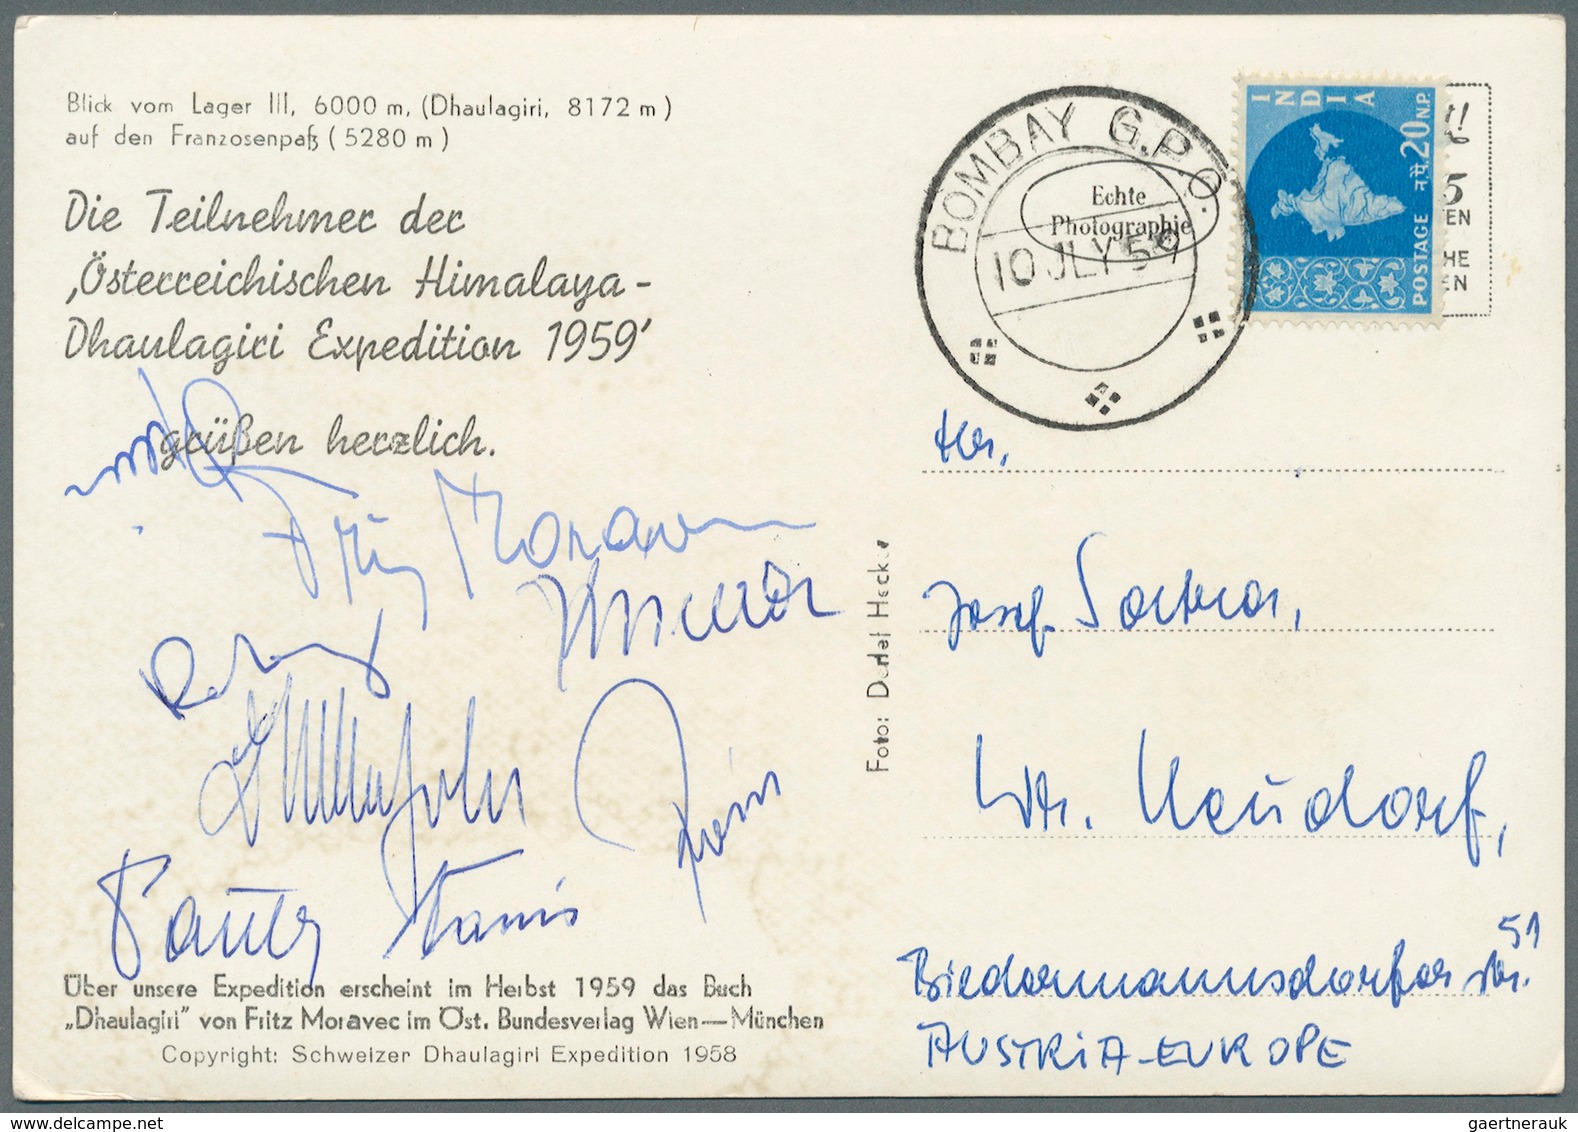 Blick vom Lager III, 6000 m, (Dhaulagiri, 8172 m)
auf den Franzosenpaß (5280 m)
Die Teilnehmer der
‚Österreichischen Himalaya-
Dhaulagiri Expedition 1959'
grüßen herzlich.
Fritz Moravec
Stanis
Prein
Über unsere Expedition erscheint im Herbst 1959 das Buch
„Dhaulagiri" von Fritz Moravec im Öst. Bundesverlag Wien—München
Copyright: Schweizer Dhaulagiri Expedition 1958
Foto: Detlef Hecker
BOMBAY G.P.O.
10 JLY 59
Echte
Photographie
INDIA
POSTAGE न.पै. 20 N.P.
5
EN
HE
EN
Hr.
Josef
Wr. Neudorf,
Biedermannsdorfer Str. 51
AUSTRIA-EUROPE
gaertnerauk